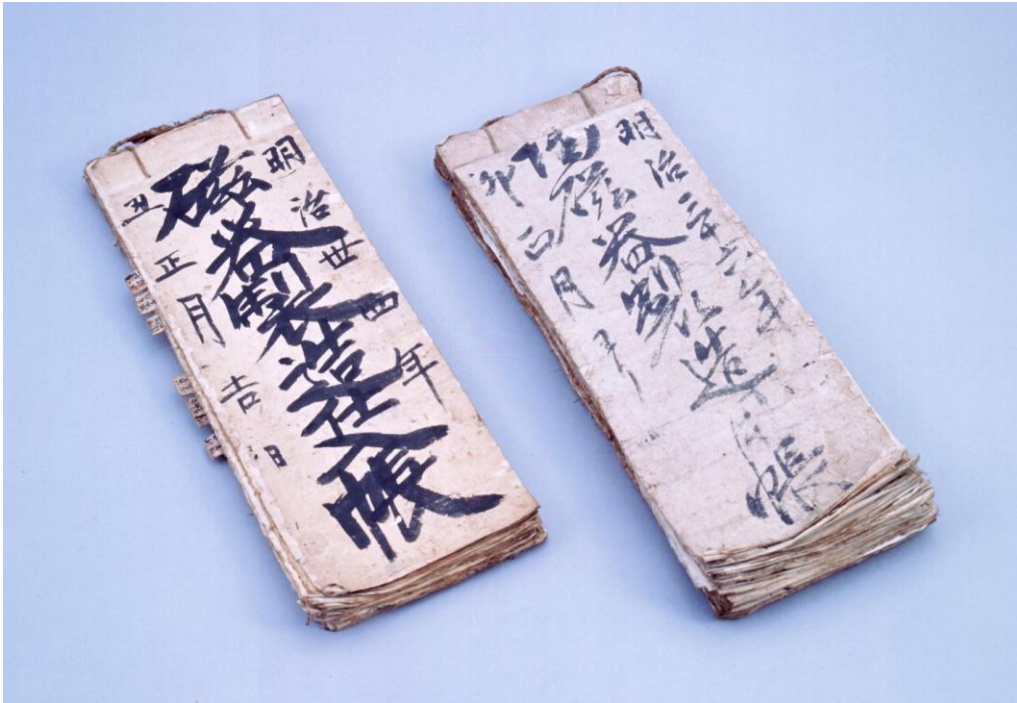 明治丗四年
磁器製造仕入帳
丑正月吉日
明治三十六年
陶磁器製造帳
卯正月